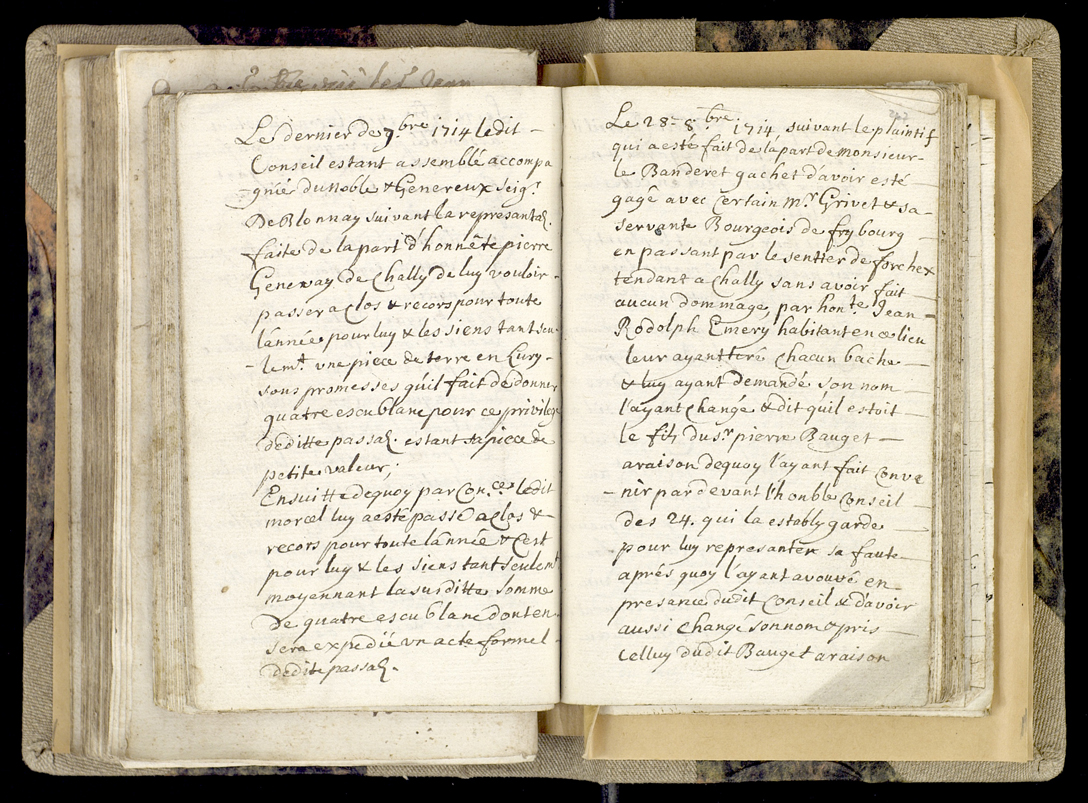 Le dernier de 7.bre 1714 ledit –
Conseil estant assemblé accompa
gnié du Noble & Genereux seigr.
De Blonnay suivant la represantaõ.
faite de la part d'honnête pierre
Geneway de Chally de luy vouloir –
passer a Clos & recors pour toute
lannée pour luy & les siens tant seu-
– lemt. une piece de terre en Cury –
sous promesses quil fait de donner
quatre escu blanc pour ce privilege
deditte passaõ. estant sa piece de
petite valeur;
Ensuitte dequoy par Con.ce ledit
morcel luy a esté passé a Clos &
recors pour toute lannée & C'est
pour luy & les siens tant seulemt
moyennant la susditte somme
De quatre escu blanc dont en
sera expedié un acte formel –
dedite passaõ.
Le 28e 8.bre 1714 suivant le plaintif
qui a esté fait de la part de monsieur –
le Banderet gachet d'avoir esté –
gagé avec Certain mr. Grivet & sa –
servante Bourgeois de frybourg –
en passant par le sentier de forchex
tendant a Chally sans avoir fait –
aucun dommage, par honte. Jean –
Rodolph Emery habitant en ce lieu
leur ayant tiré Chacun bache –
& luy ayant demandé son nom –
l'ayant Changé & dit qu'il estoit –
le fils du sr. pierre Bauget –
a raison dequoy l'ayant fait Conve
– nir par devant l'honble Conseil –
des 24. qui la estably garde –
pour luy represanter sa faute –
aprés quoy l'ayant avouvé en –
presance dudit Conseil & d'avoir
aussi Changé son nom & pris –
Celluy dudit Bauget a raison